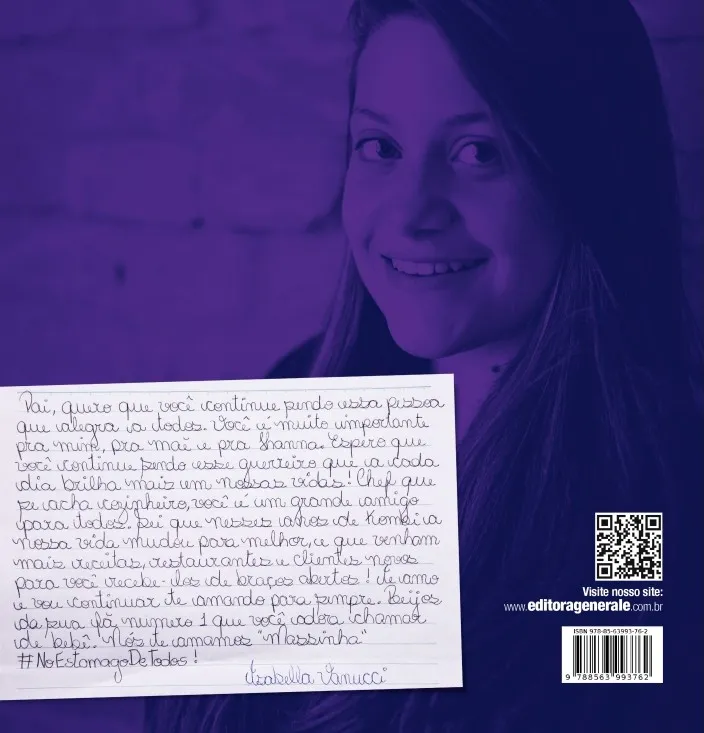 Pai, quero que você continue sendo essa pessoa
que alegra a todos. Você é muito importante
pra mim, pra mãe e pra Shanna. Espero que
você continue sendo esse guerreiro que a cada
dia brilha mais em nossas vidas! Chef que
se acha cozinheiro, você é um grande amigo
para todos. Sei que nesses anos de Kombi a
nossa vida mudou para melhor, e que venham
mais receitas, restaurantes e clientes novos
para você recebe-los de braços abertos! Te amo
e vou continuar te amando para sempre. Beijos
da sua fã numero 1 que você adora chamar
de "bebê". Nós te amamos "Massinha"
#NoEstomagoDeTodos!
Izabella Vanucci
Visite nosso site:
www.editoragenerale.com.br
ISBN 978-85-63993-76-2
9 788563 993762